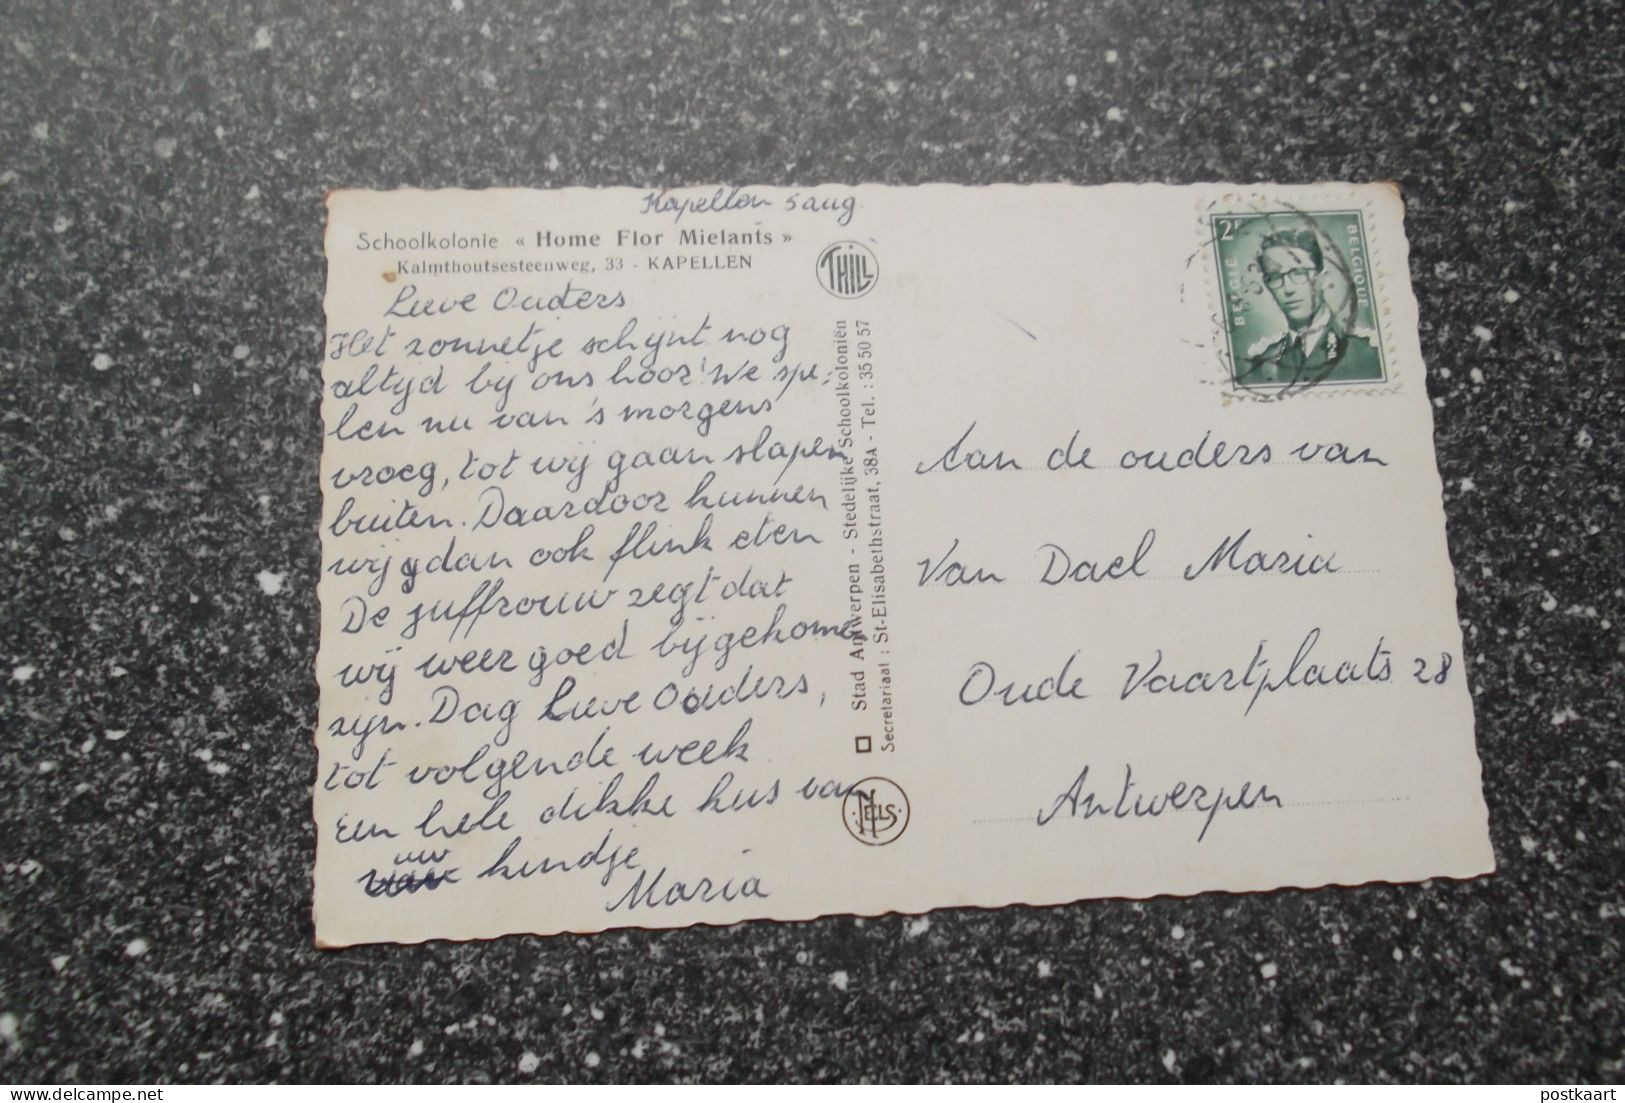 Kapellen 5 aug.
Schoolkolonie « Home Flor Mielants »
Kalmthoutsesteenweg, 33 - KAPELLEN
Lieve Ouders
Het zonnetje schijnt nog
altijd bij ons hoor! We spe-
len nu van 's morgens
vroeg, tot wij gaan slapen
buiten. Daardoor kunnen
wij dan ook flink eten
De juffrouw zegt dat
wij weer goed bijgekomen
zijn. Dag Lieve Ouders,
tot volgende week
Een hele dikke kus van
uw kindje
Maria
THILL
Stad Antwerpen - Stedelijke Schoolkoloniën
Secretariaat : St-Elisabethstraat, 38A - Tel. : 35 50 57
NELS
2F
BELGIË
BELGIQUE
Aan de ouders van
Van Dael Maria
Oude Vaartplaats 28
Antwerpen
postkaart